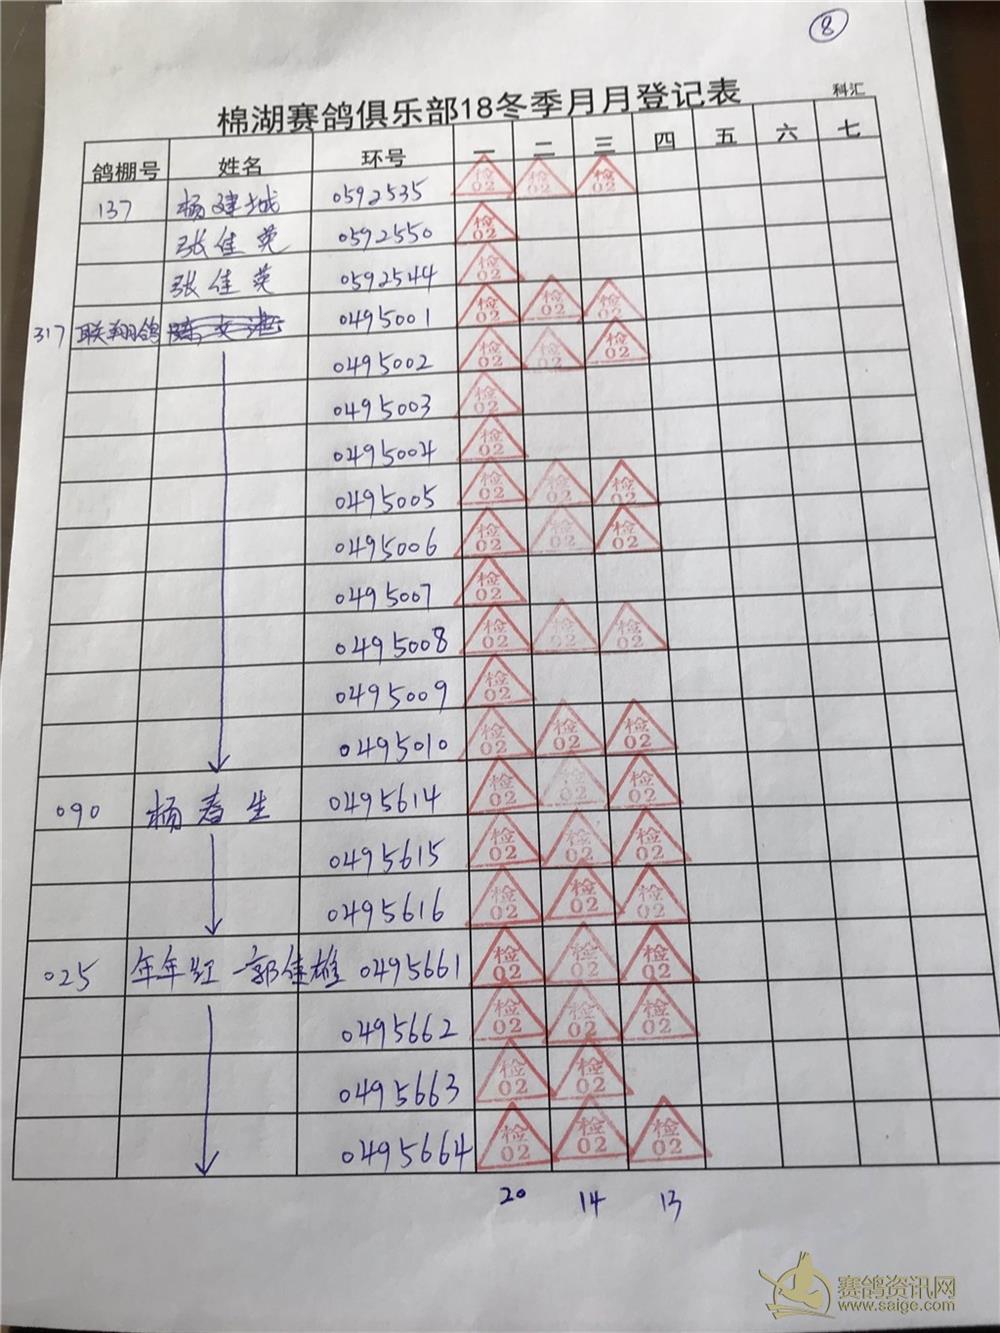 8
棉湖赛鸽俱乐部18冬季月月登记表
科汇
鸽棚号 姓名 环号 一 二 三 四 五 六 七
137 杨建城 0592535 检02 检02 检02
张佳英 0592550 检02
张佳英 0592544 检02
317 联翔鸽 0495001 检02 检02 检02
0495002 检02 检02 检02
0495003 检02
0495004 检02
0495005 检02 检02 检02
0495006 检02 检02 检02
0495007 检02
0495008 检02 检02 检02
0495009 检02
0495010 检02 检02 检02
090 杨春生 0495614 检02 检02 检02
0495615 检02 检02 检02
0495616 检02 检02 检02
025 年年红－郭佳雄 0495661 检02 检02 检02
0495662 检02 检02 检02
0495663 检02 检02
0495664 检02 检02 检02
20 14 13
赛鸽资讯网
www.saige.com